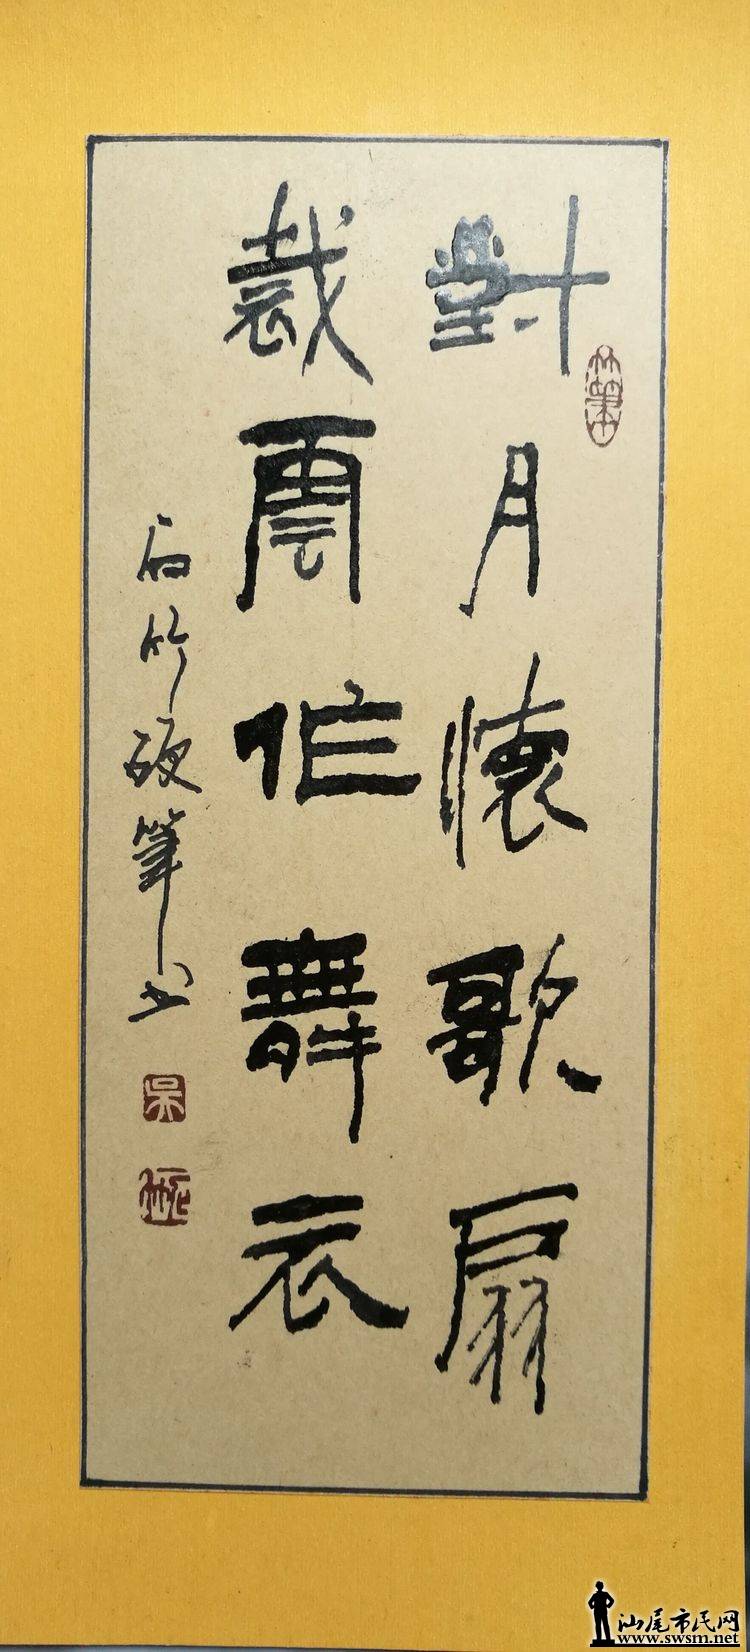 對月懷歌扇
裁雲作舞衣
雨竹硬筆書
吳
汕尾市民网
www.swsm.net